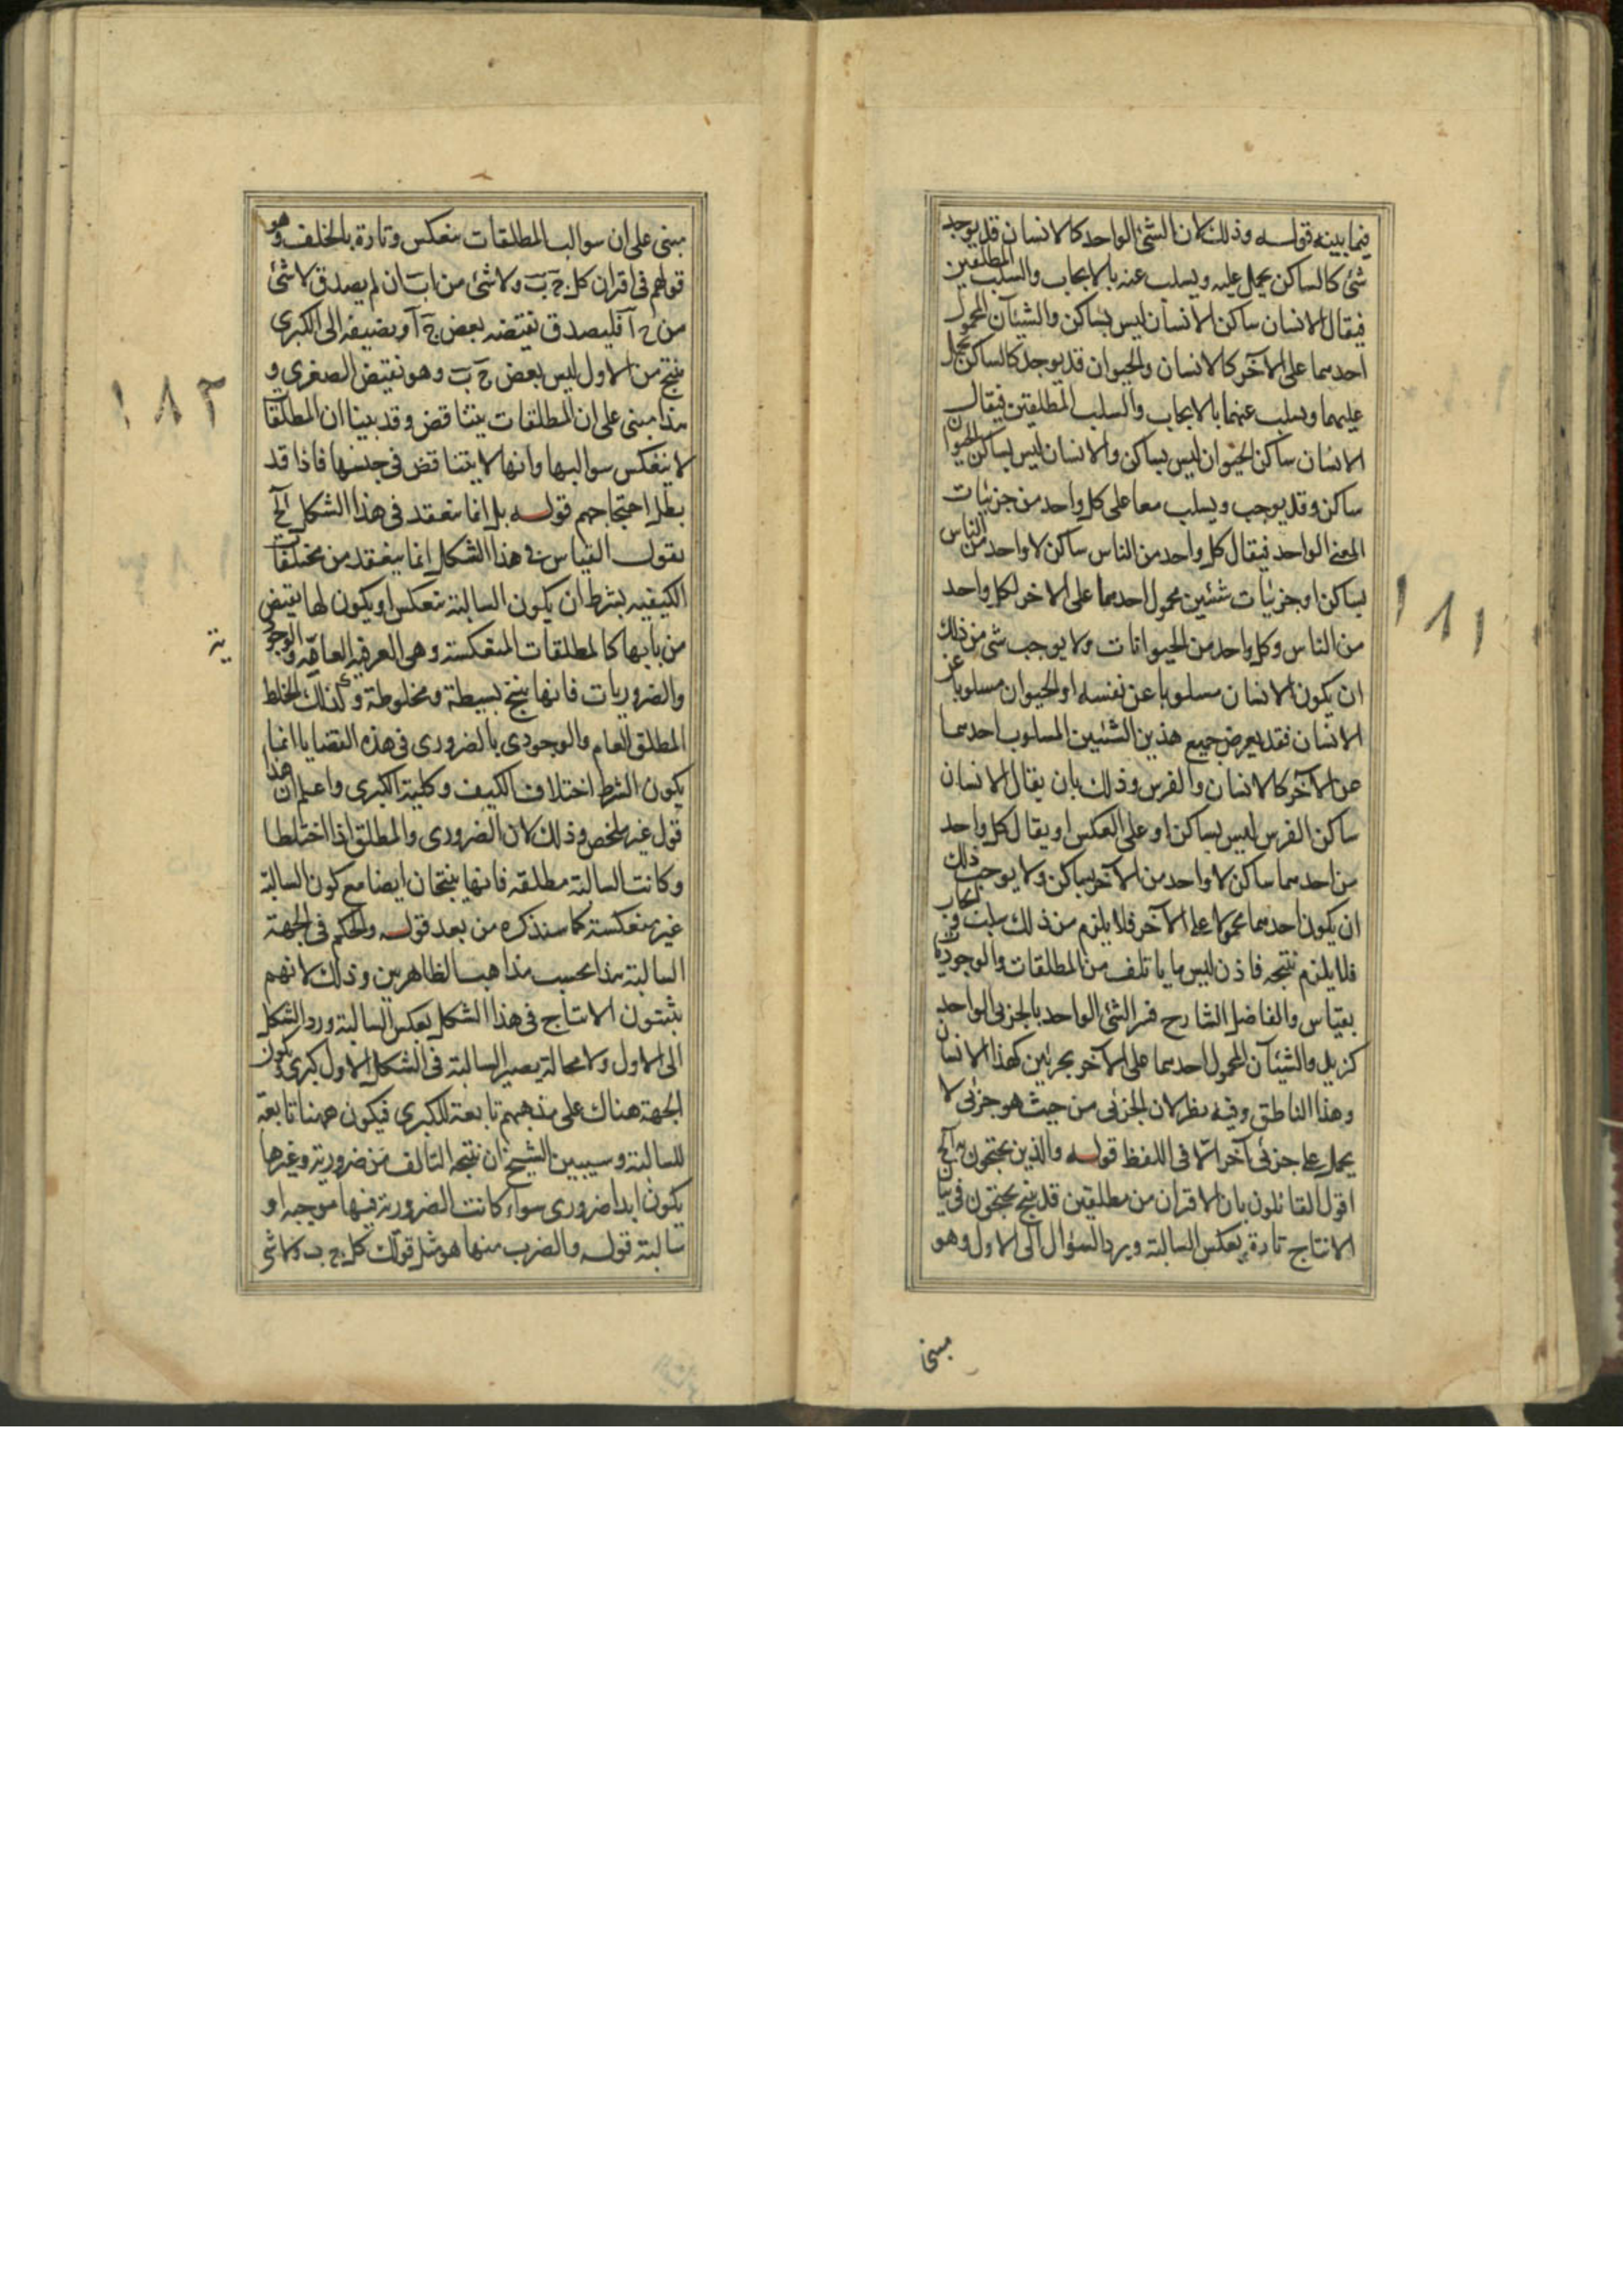 فيما بينه قوله وذلك لان الشئ الواحد كالانسان قد يوجد
شئ كالساكن يحمل عليه ويسلب عنه بالايجاب والسلب المطلقين
فيقال الانسان ساكن الانسان ليس بساكن والشيئان المحمول
احدهما على الآخر كالانسان والحيوان قد يوجد كالساكن يحمل
عليهما ويسلب عنهما بالايجاب والسلب المطلقين فيقال
الانسان ساكن الحيوان ليس بساكن والانسان ليس بساكن الحيوان
ساكن وقد يوجب ويسلب معا على كل واحد من جزئيات
المعنى الواحد فيقال كل واحد من الناس ساكن لا واحد من الناس
بساكن او جزئيات شيئين محمول احدهما على الاخر لكل واحد
من الناس وكل واحد من الحيوانات ولا يوجب شئ من ذلك
ان يكون الانسان مسلوبا عن نفسه او الحيوان مسلوبا عن
الانسان فقد يعرض جميع هذين الشيئين المسلوب احدهما
عن الآخر كالانسان والفرس وذلك بان يقال الانسان
ساكن الفرس ليس بساكن او على العكس او يقال كل واحد
من احدهما ساكن لا واحد من الآخر بساكن ولا يوجب ذلك
ان يكون احدهما محمولا على الآخر فلا يلزم من ذلك سلب ولا ايجاب
فلا يلزم نتيجه فاذن ليس ما ياتلف من المطلقات والوجوديات
بقياس والفاضل الشارح فسر الشئ الواحد بالجزئى الواحد
كزيد والشيئان المحمول احدهما على الآخر بجزئين كهذا الانسان
وهذا الناطق وفيه نظر لان الجزئى من حيث هو جزئى لا
يحمل على جزئى آخر الا فى اللفظ قوله والذين يحتجون به الخ
اقول القائلون بان الاقتران من مطلقين قد ينتج يحتجون فى بيان
الانتاج تارة بعكس السالبة ويرد السؤال الى الاول وهو
مبنى
١٨١
مبنى على ان سوالب المطلقات ينعكس وتارة بالخلف وهو
قولهم فى اقتران كل ج ب ولا شئ من ا ب ان لم يصدق لا شئ
من ج ا فليصدق نقيضه بعض ج ا ويضيفه الى الكبرى
ينتج من الاول ليس بعض ج ب وهو نقيض الصغرى و
هذا مبنى على ان المطلقات يتناقض وقد بينا ان المطلقا
لا ينعكس سوالبها وانها لا يتناقض فى جنسها فاذا قد
بطل احتجاجهم قوله بل انما ينعقد فى هذا الشكل الخ
يقول القياس فى هذا الشكل انما ينعقد من مختلفات
الكيفيه بشرط ان يكون السالبة ينعكس او يكون لها نقيض
من بابها كالمطلقات المنعكسة وهى العرفية العامه والوجود
ية
والضروريات فانها ينتج بسيطة ومخلوطة وكذلك الخلط
المطلق العام والوجودى بالضرورى فى هذه القضايا انما
يكون الشرط اختلاف الكيف وكلية الكبرى واعلم ان هذا
قول غير ملخص وذلك لان الضرورى والمطلق اذا اختلطا
وكانت السالبة مطلقه فانها ينتجان ايضا مع كون السالبة
غير منعكسة كما سنذكره من بعد قوله والحكم فى الجهة
السالبة هذا بحسب مذاهب الظاهريين وذلك لانهم
يثبتون الانتاج فى هذا الشكل بعكس السالبة ورد الشكل
الى الاول ولا محالة يصير السالبة فى الشكل الاول كبرى ويكون
الجهة هناك على مذهبهم تابعة للكبرى فيكون ههنا تابعة
للسالبة وسيبين الشيخ ان نتيجه التالف من ضرورية وغيرها
يكون ابدا ضرورى سواء كانت الضرورية فيها موجبه او
سالبة قوله والضرب منها هو مثل قولك كل ج ب ولا شئ
١٨٢